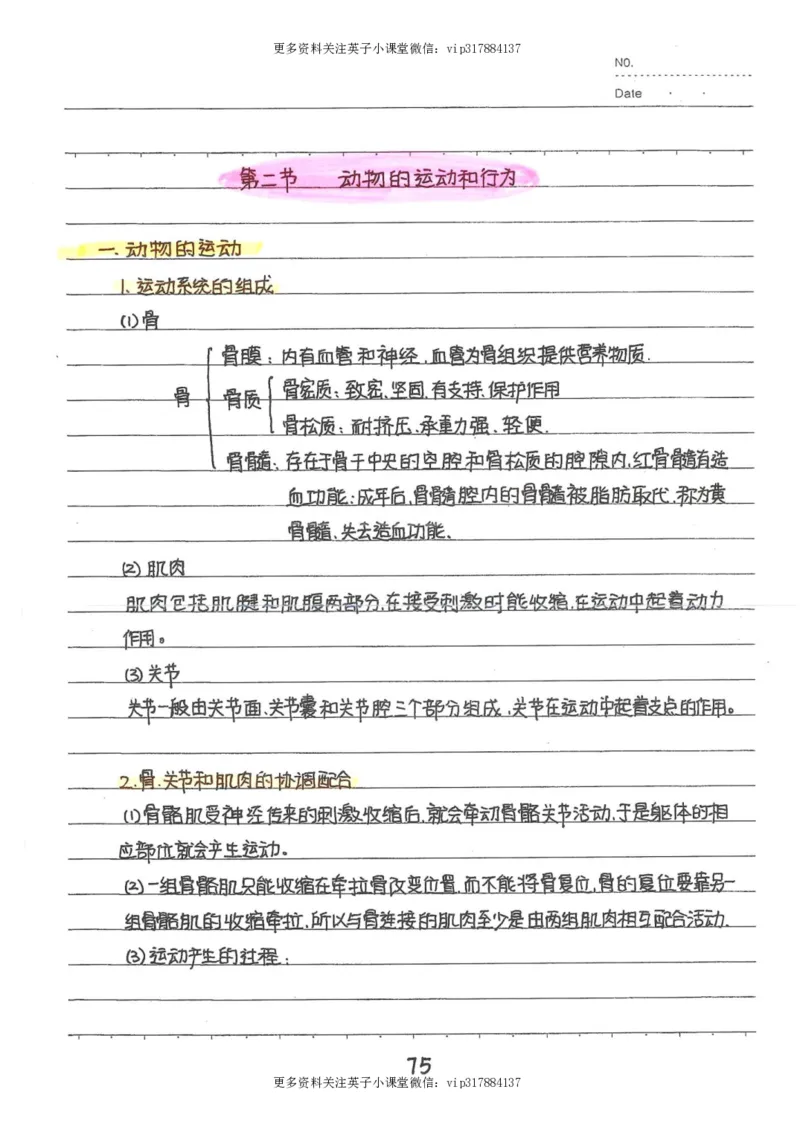 更多资料关注英子小课堂微信：vip317884137
NO.
Date
第二节 动物的运动和行为
一.动物的运动
1、运动系统的组成
(1)骨
骨膜：内有血管和神经,血管为骨组织提供营养物质.
骨密质：致密、坚固,有支持、保护作用
骨 骨质
骨松质：耐挤压、承重力强、轻便.
骨骨髓：存在于骨干中央的空腔和骨松质的腔隙内,红骨骨髓有造
血功能；成年后,骨骨髓腔内的骨骨髓被脂肪取代,称为黄
骨骨髓,失去造血功能、
(2)肌肉
肌肉包括肌腱和肌腹两部分,在接受刺激时能收缩,在运动中起着动力
作用。
(3)关节
关节一般由关节面、关节囊和关节腔三个部分组成,关节在运动中起着支点的作用。
2.骨.关节和肌肉的协调配合
(1)骨骼肌受神经传来的刺激收缩后,就会牵动骨骼关节活动,于是躯体的相
应部位就会产生运动。
(2)一组骨骼肌只能收缩在牵拉骨改变位置,而不能将骨复位,骨的复位要靠另一
组骨骼肌的收缩牵拉,所以与骨连接的肌肉至少是由两组肌肉相互配合活动.
(3)运动产生的过程：
75
更多资料关注英子小课堂微信：vip317884137